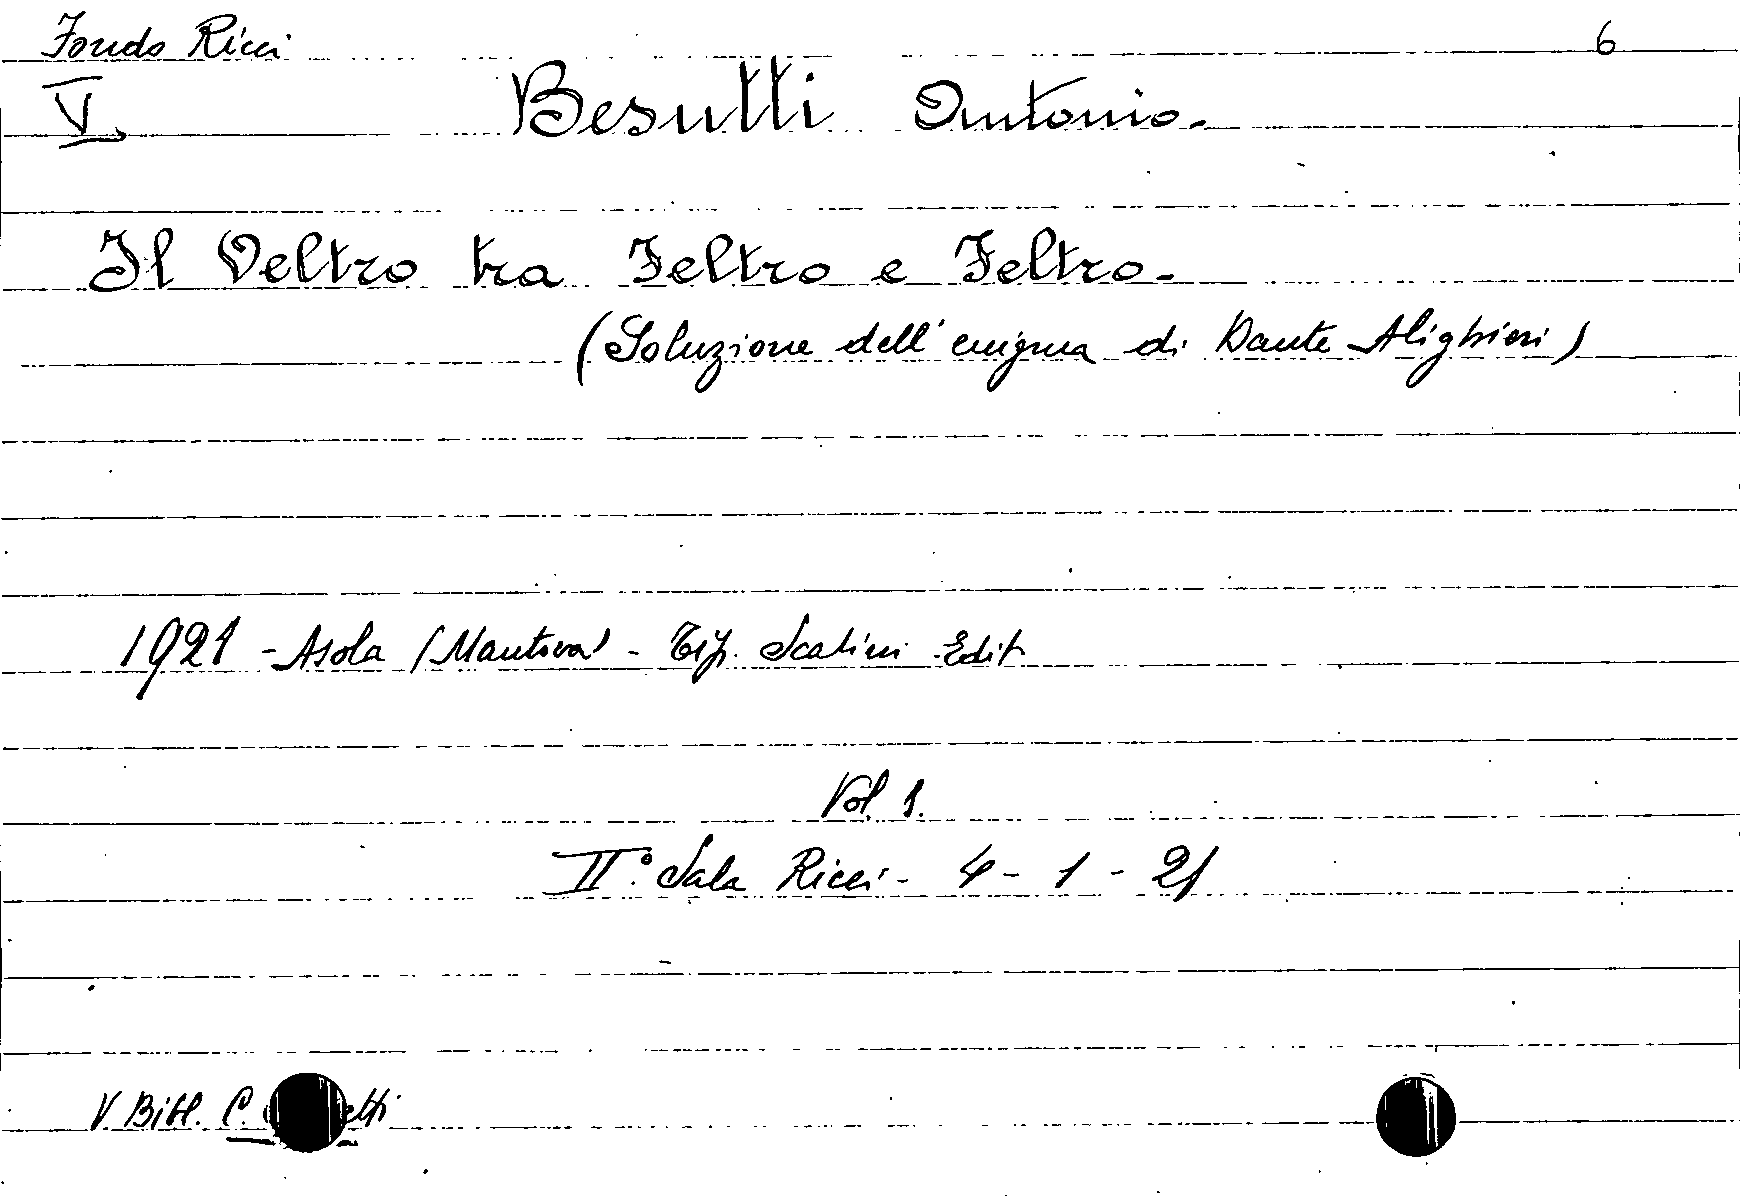 Fondo Ricci 6
V Besutti Antonio.
Il Veltro tra Feltro e Feltro.
(Soluzione dell'enigma di Dante Alighieri)
1921 - Asola (Mantova) - Tip. Scalini Edit
Vol. 1.
II° Sala Ricci - 4 - 1 - 21
V Bibl. C.